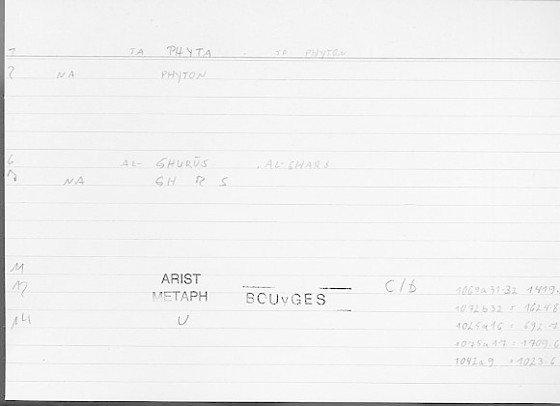 1 TA PHYTA . TO PHYTON
2 NA PHYTON
6 AL- GHURŪS .AL-GHARS
7 NA GH R S
11
12 ARIST METAPH BCUvGES C/b 1069a31-32 1419.
1072b32 = 1624.8
14 U 1025a16 = 692.7
1075a17 = 1709.6
1042a9 = 1023.6